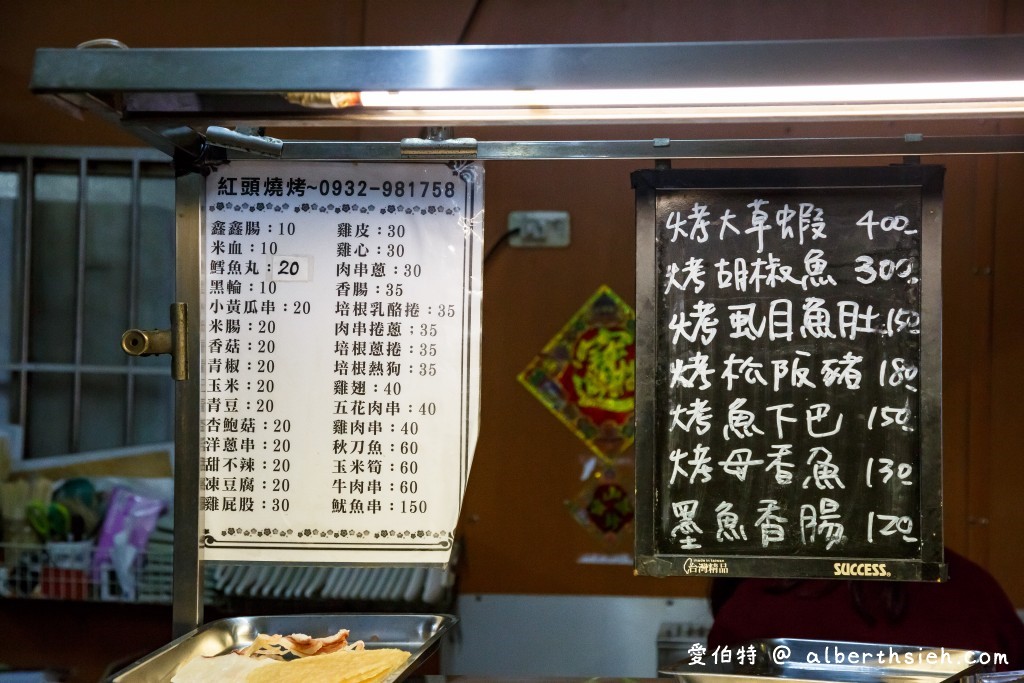 紅頭燒烤~0932-981758
鑫鑫腸：10
米血：10
鱈魚丸：20
黑輪：10
小黃瓜串：20
米腸：20
香菇：20
青椒：20
玉米：20
青豆：20
杏鮑菇：20
洋蔥串：20
甜不辣：20
凍豆腐：20
雞屁股：30
雞皮：30
雞心：30
肉串蔥：30
香腸：35
培根乳酪捲：35
肉串捲蔥：35
培根蔥捲：35
培根熱狗：35
雞翅：40
五花肉串：40
雞肉串：40
秋刀魚：60
玉米筍：60
牛肉串：60
魷魚串：150
烤大草蝦 400
烤胡椒魚 300
烤虱目魚肚 150
烤松阪豬 180
烤魚下巴 150
烤母香魚 130
墨魚香腸 120
台灣精品 SUCCESS®
愛伯特 @ alberthsieh.com